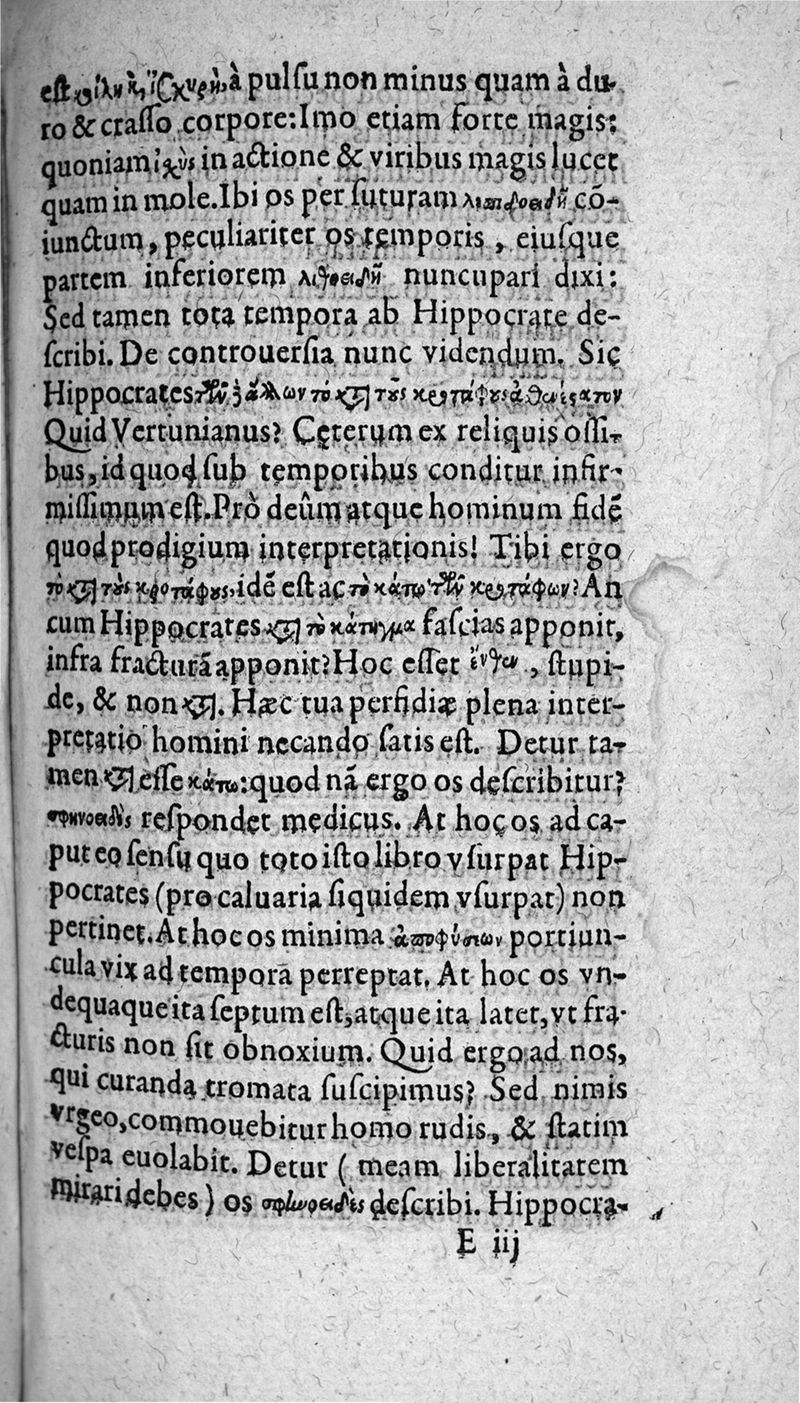 est à pulsu non minus quam à du-
ro & crasso corpore: Imo etiam forte magis:
quoniam in actione & viribus magis lucet
quam in mole. Ibi os per suturam λεπιδοειδῆ cō-
iunctum, peculiariter os temporis, eiusque
partem inferiorem λιθοειδῆ nuncupari dixi:
Sed tamen tota tempora ab Hippocrate de-
scribi. De controuersia nunc videndum. Sic
Hippocrates, τῶν δ' ἄλλων τὸ κατὰ τοὺς κροτάφους ἀσθενέστατον
Quid Vertunianus? Ceterum ex reliquis ossi-
bus, id quod sub temporibus conditur infir-
missimum est. Pro deûm atque hominum fidē
quod prodigium interpretationis! Tibi ergo
τὸ κατὰ τοὺς κροτάφους, idē est ac τὸ κάτω τῶν κροτάφων? An
cum Hippocrates κατὰ τὸ κάτηγμα fascias apponit,
infra fracturā apponit? Hoc esset , stupi-
de, & non κατὰ. Hæc tua perfidiæ plena inter-
pretatio homini necando satis est. Detur ta-
men κατὰ esse κάτω: quod nā ergo os describitur?
σφηνοειδὲς respondet medicus. At hoc os ad ca-
put eo sensu quo toto isto libro vsurpat Hip-
pocrates (pro caluaria siquidem vsurpat) non
pertinet. At hoc os minima ἀποφύσεων portiun-
cula vix ad tempora perreptat. At hoc os vn-
dequaque ita septum est, atque ita latet, vt fra-
cturis non sit obnoxium. Quid ergo ad nos,
qui curanda tromata suscipimus? Sed nimis
vrgeo, commouebitur homo rudis, & statim
vespa euolabit. Detur ( meam liberalitatem
mirari debes ) os σφηνοειδὲς describi. Hippocra-
E iij